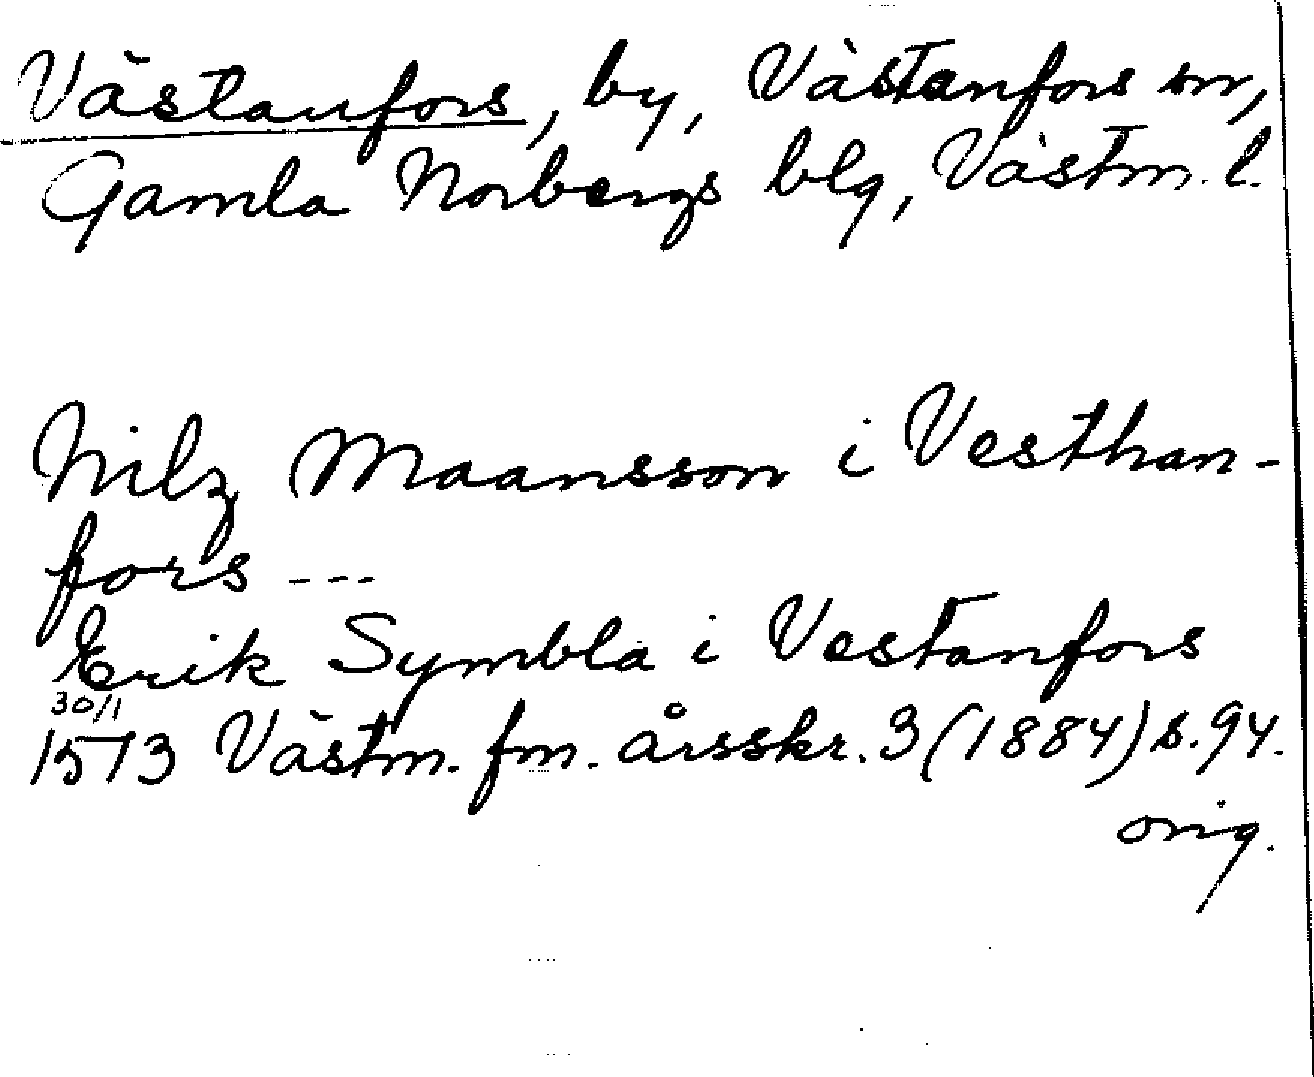 Västanfors, by, Västanfors sn,
Gamla Norbergs blg, Västm. l.
Nilz Maansson i Vesthan-
fors ---
Erik Symbla i Vestanfors
30/1
1573 Västm. fm. årsskr. 3 (1884) s. 94.
orig.